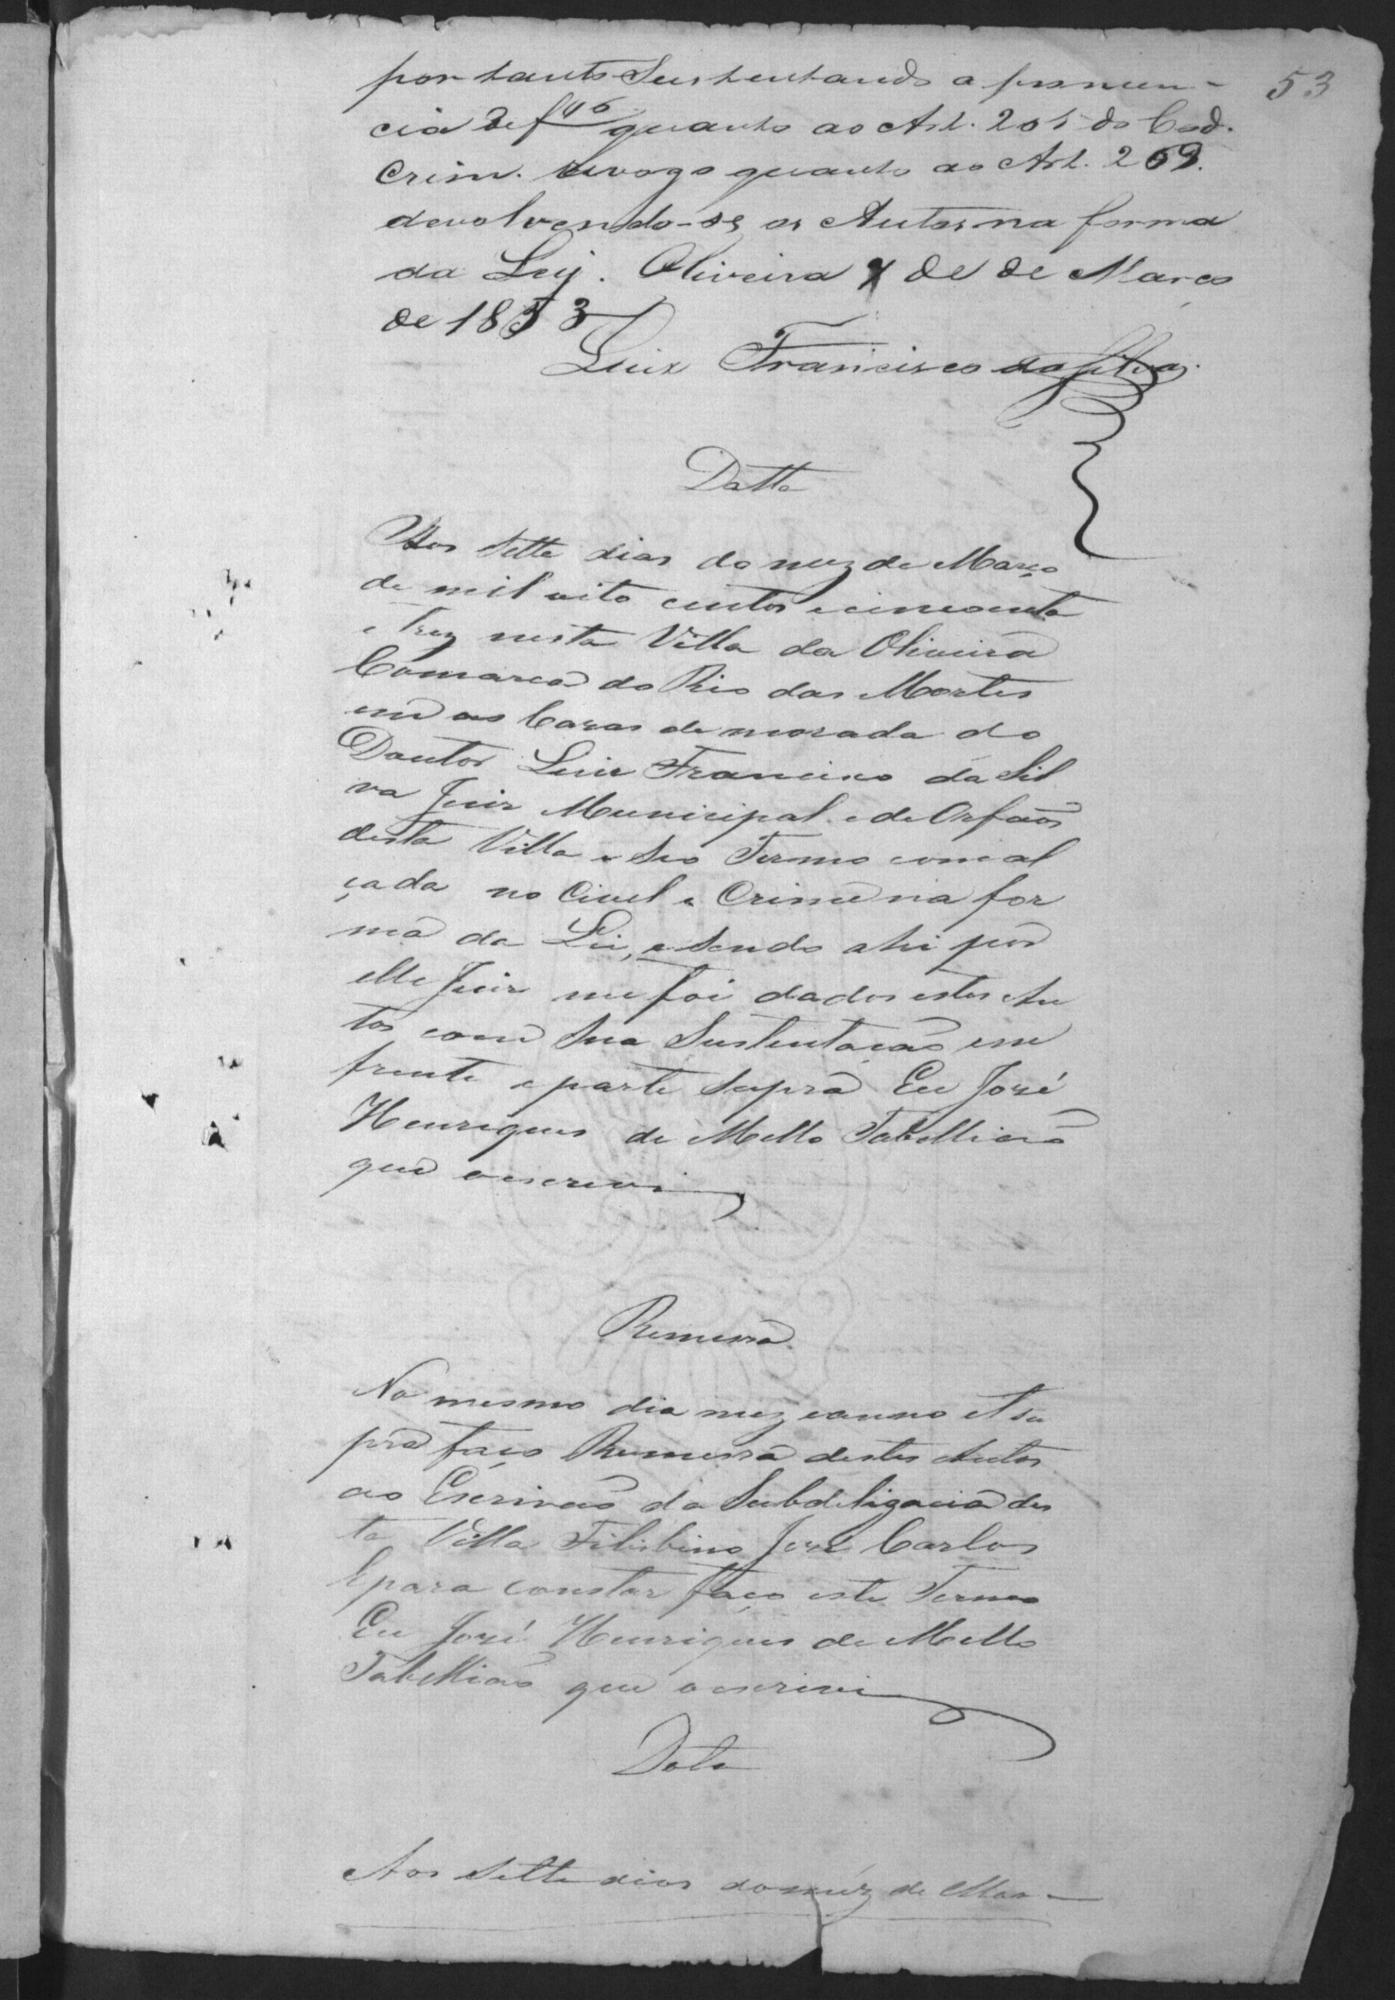 53
por tanto Sustentando a pronun-
cia de f 46 quanto ao Art. 205 do Cod.
Crim. revogo quanto ao Art. 269.
devolvendo-se os Autos na forma
da Ley. Oliveira 7 de de Março
de 1853
Luiz Francisco da Silva.
Datta
Aos Sette dias do mez de Março
de mil oito centos e cincoenta
e trez nesta Villa da Oliveira
Comarca do Rio das Mortes
em as Cazas de morada do
Doutor Luiz Francisco da Sil
va Juiz Municipal e de Orfaõs
desta Villa e Seo Termo com al
çada no Civel e Crime na for
ma da Lei, e Sendo ahi por
elle Juiz me foi dados estes Au
tos com Sua Sustentação em
frente e parte Supra Eu José
Henriques de Mello Tabellião
que o escrevi
Remessa
No mesmo dia mez e anno et su
pra faço Remessa destes Autos
ao Escrivão da Subdeligacia des
ta Villa José Carlos
E para constar faço este Termo
Eu José Henriques de Mello
Tabellião que o escrevi
Data
Aos Sette dias do méz de Mar-